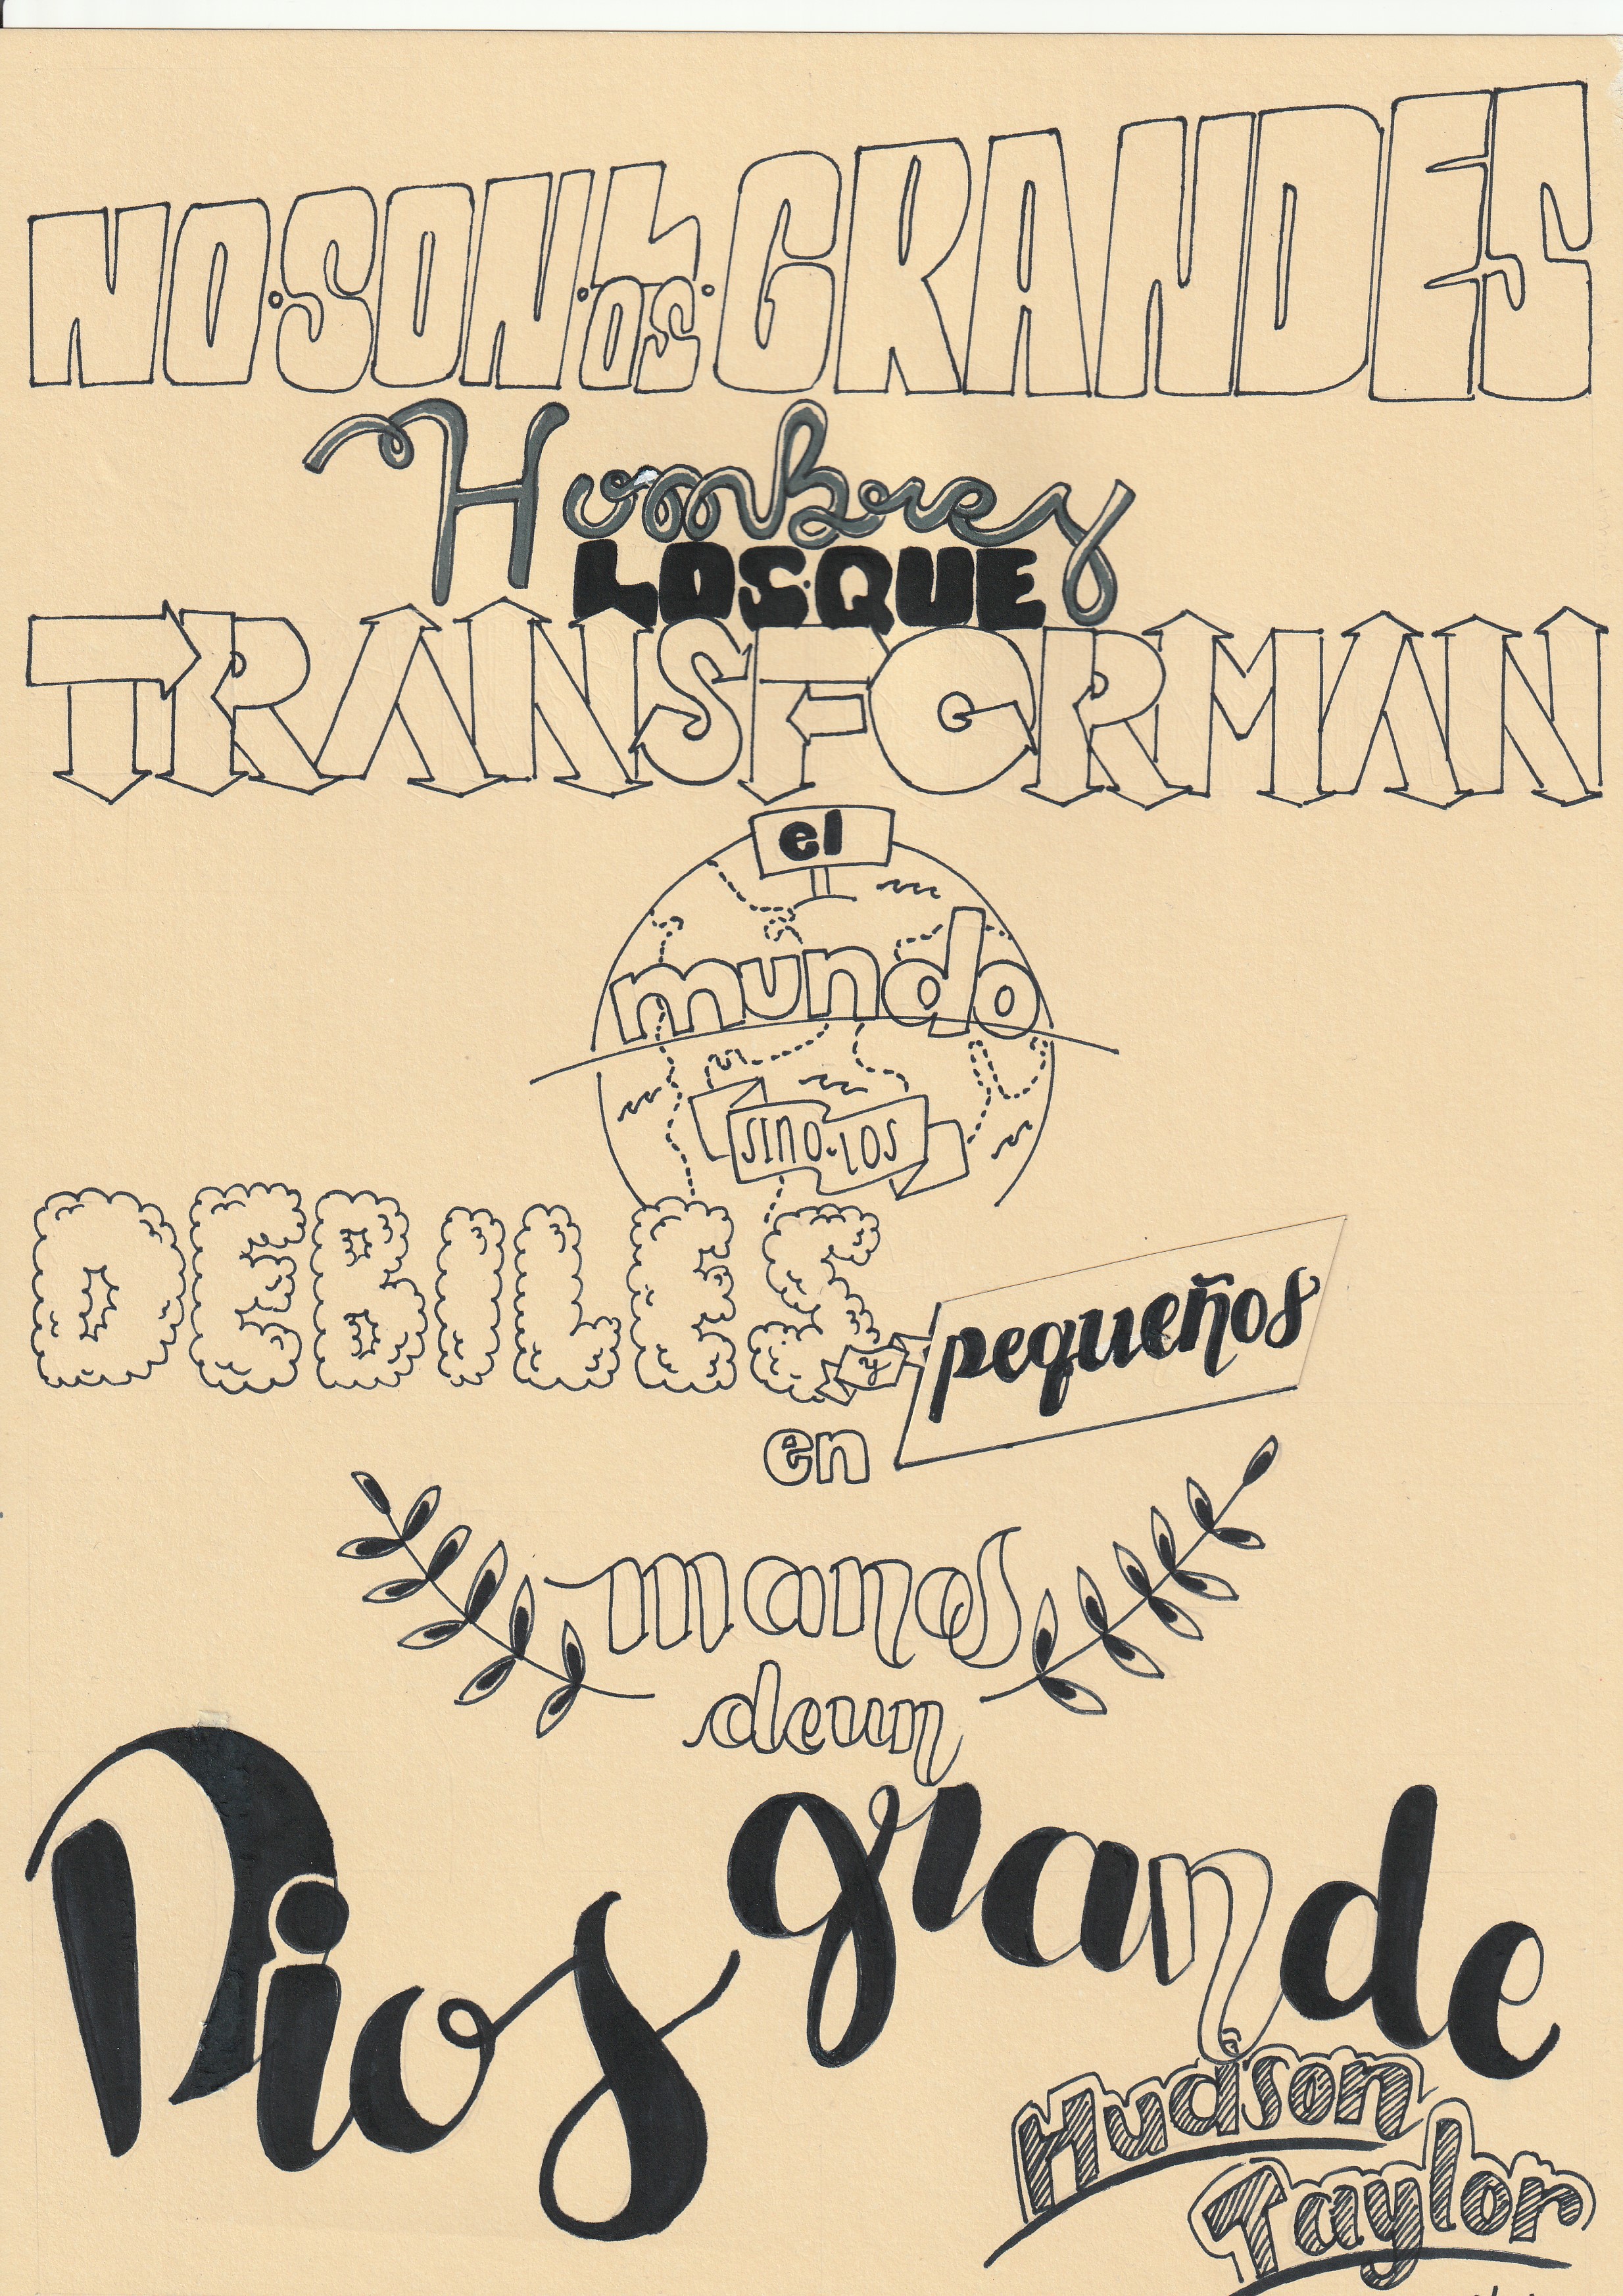 NO·SON·LOS·GRANDES
Hombres
LOS·QUE
TRANSFORMAN
el
mundo
SINO·LOS
DEBILES y pequeños
en
manos
de un
Dios grande
Hudson
Taylor